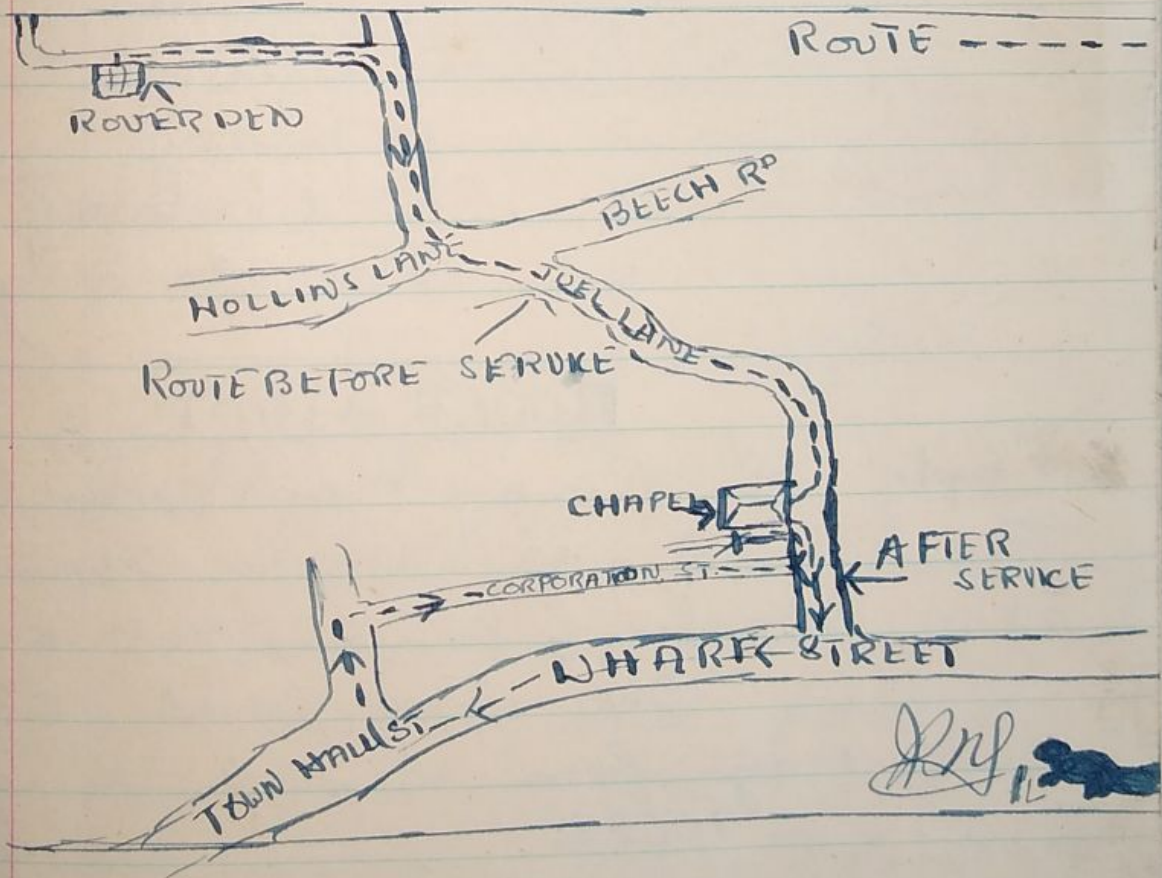 ROUTE
ROVER DEN
BEECH RD
HOLLINS LANE
TUEL LANE
ROUTE BEFORE SERVICE
CHAPEL
AFTER
SERVICE
CORPORATION ST.
WHARF STREET
TOWN HALL ST.